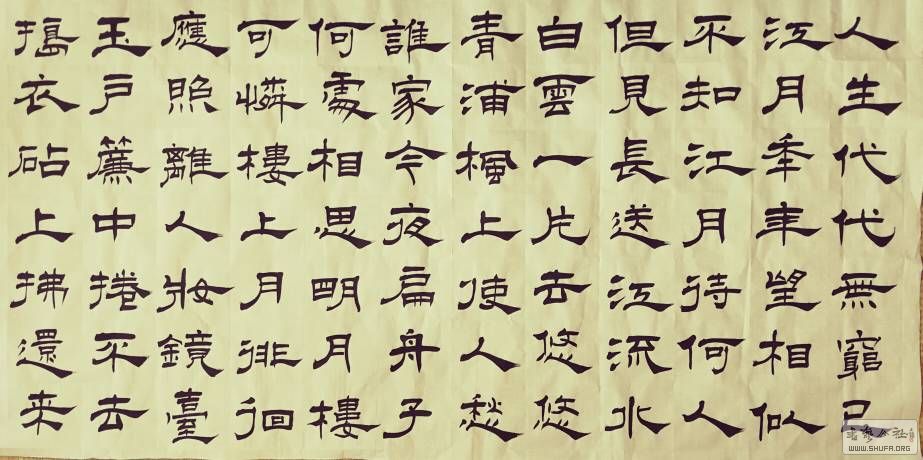 人生代代無窮已
江月秊年望相似
不知江月待何人
但見長送江流水
白雲一片去悠悠
青浦楓上使人愁
誰家今夜扁舟子
何處相思明月樓
可憐樓上月徘徊
應照離人妝鏡臺
玉戶簾中捲不去
搗衣砧上拂還来
WWW.SHUFA.ORG